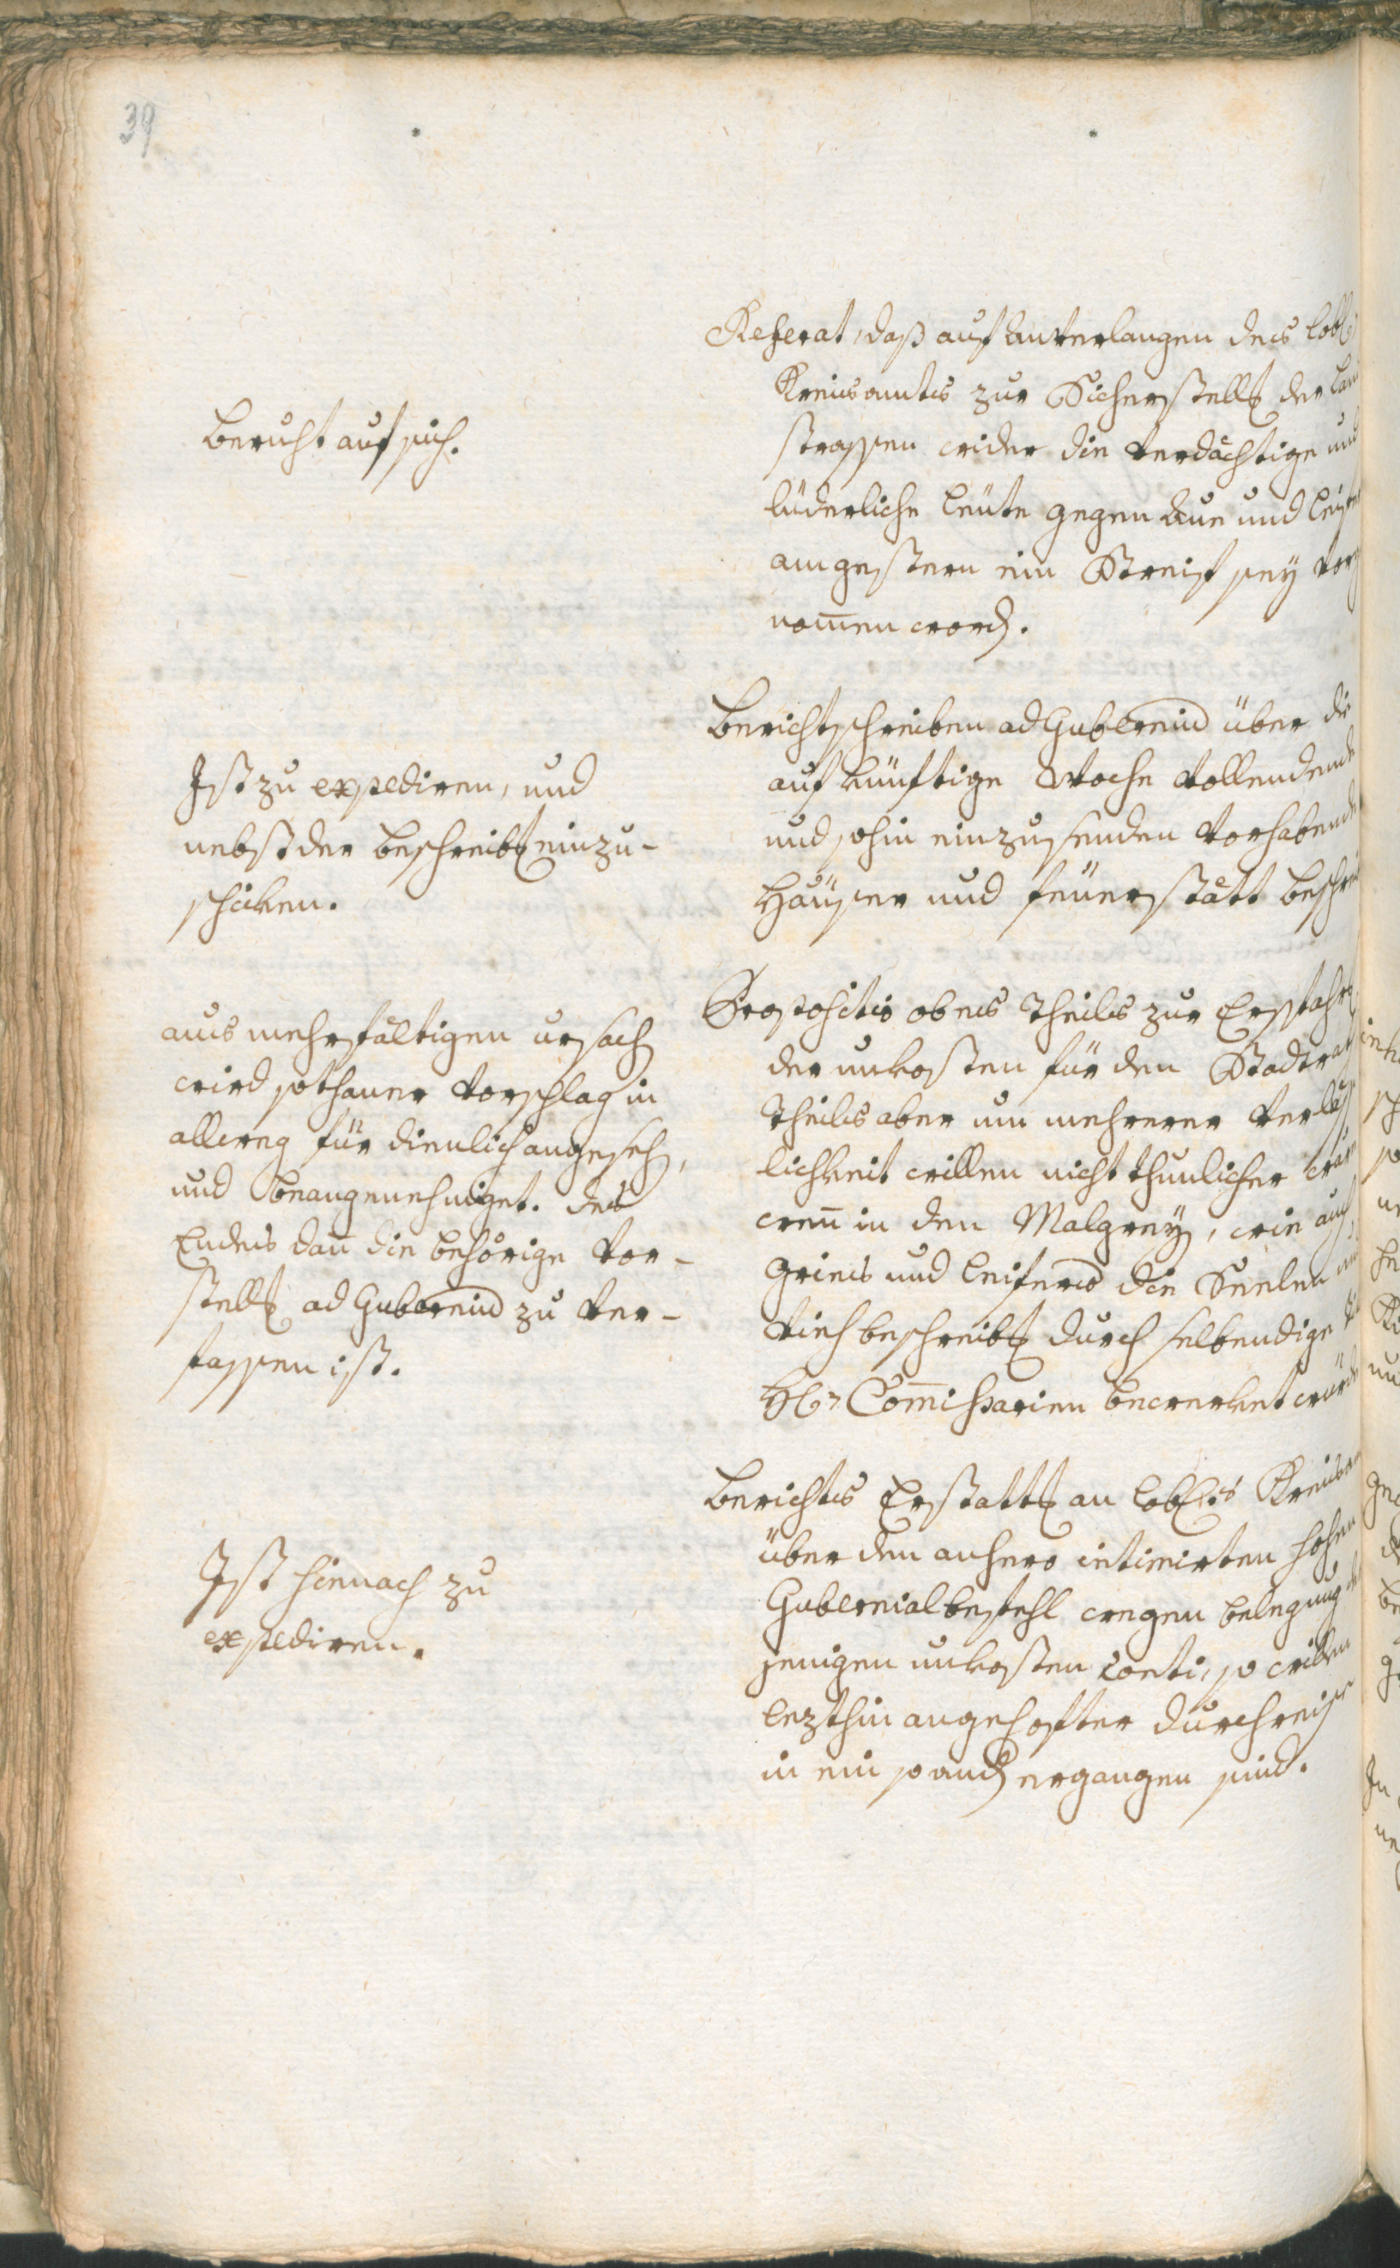 39
Referat, daß auf Anverlangen des lobl:
Kreisamtes zur Sicherstell[un]g der Land
strassen wider die verdächtige und
lüderliche Leüte gegen Aue und Leif
am gestern ein Streif sey vorg
nom̅en word[en].
Beruht auf sich.
Berichtschreiben ad Gubernium über die
auf künftige Woche vollendende
und sohin einzusenden vorhabende
Häüser und feüerstätt beschrei
Ist zu expediren, und
nebst der beschreib[un]g einzu-
schicken.
Propositio obens theils zur Ersparh
der unkosten für den Stadtrat
theils aber um mehrerer verläß
licheit willen nicht thunlicher wäre
wen̅ in den Malgrey, wie auch
Gries und Leifers die Seelen und
viech beschreib[un]g durch selbendige
H[er]r[e]n Com̅issarien bewerket würde
aus mehrfältigen ursach[en]
wird sothaner vorschlag in
allweg für dienlich angeseh[en],
und beangenehmiget. des
Endes dan̅ die behörige vor-
stell[un]g ad Gubernium zu ver-
fassen ist.
Berichts Erstatt[un]g an lobl:es Kreisam
über den anhero intimirten hohen
Gubernialbefehl wegen belegung der
jenigen unkosten Conti, so willen
lezthin angehofter durchreise
in ein so anders ergangen sind.
Ist hienach zu
expediren.